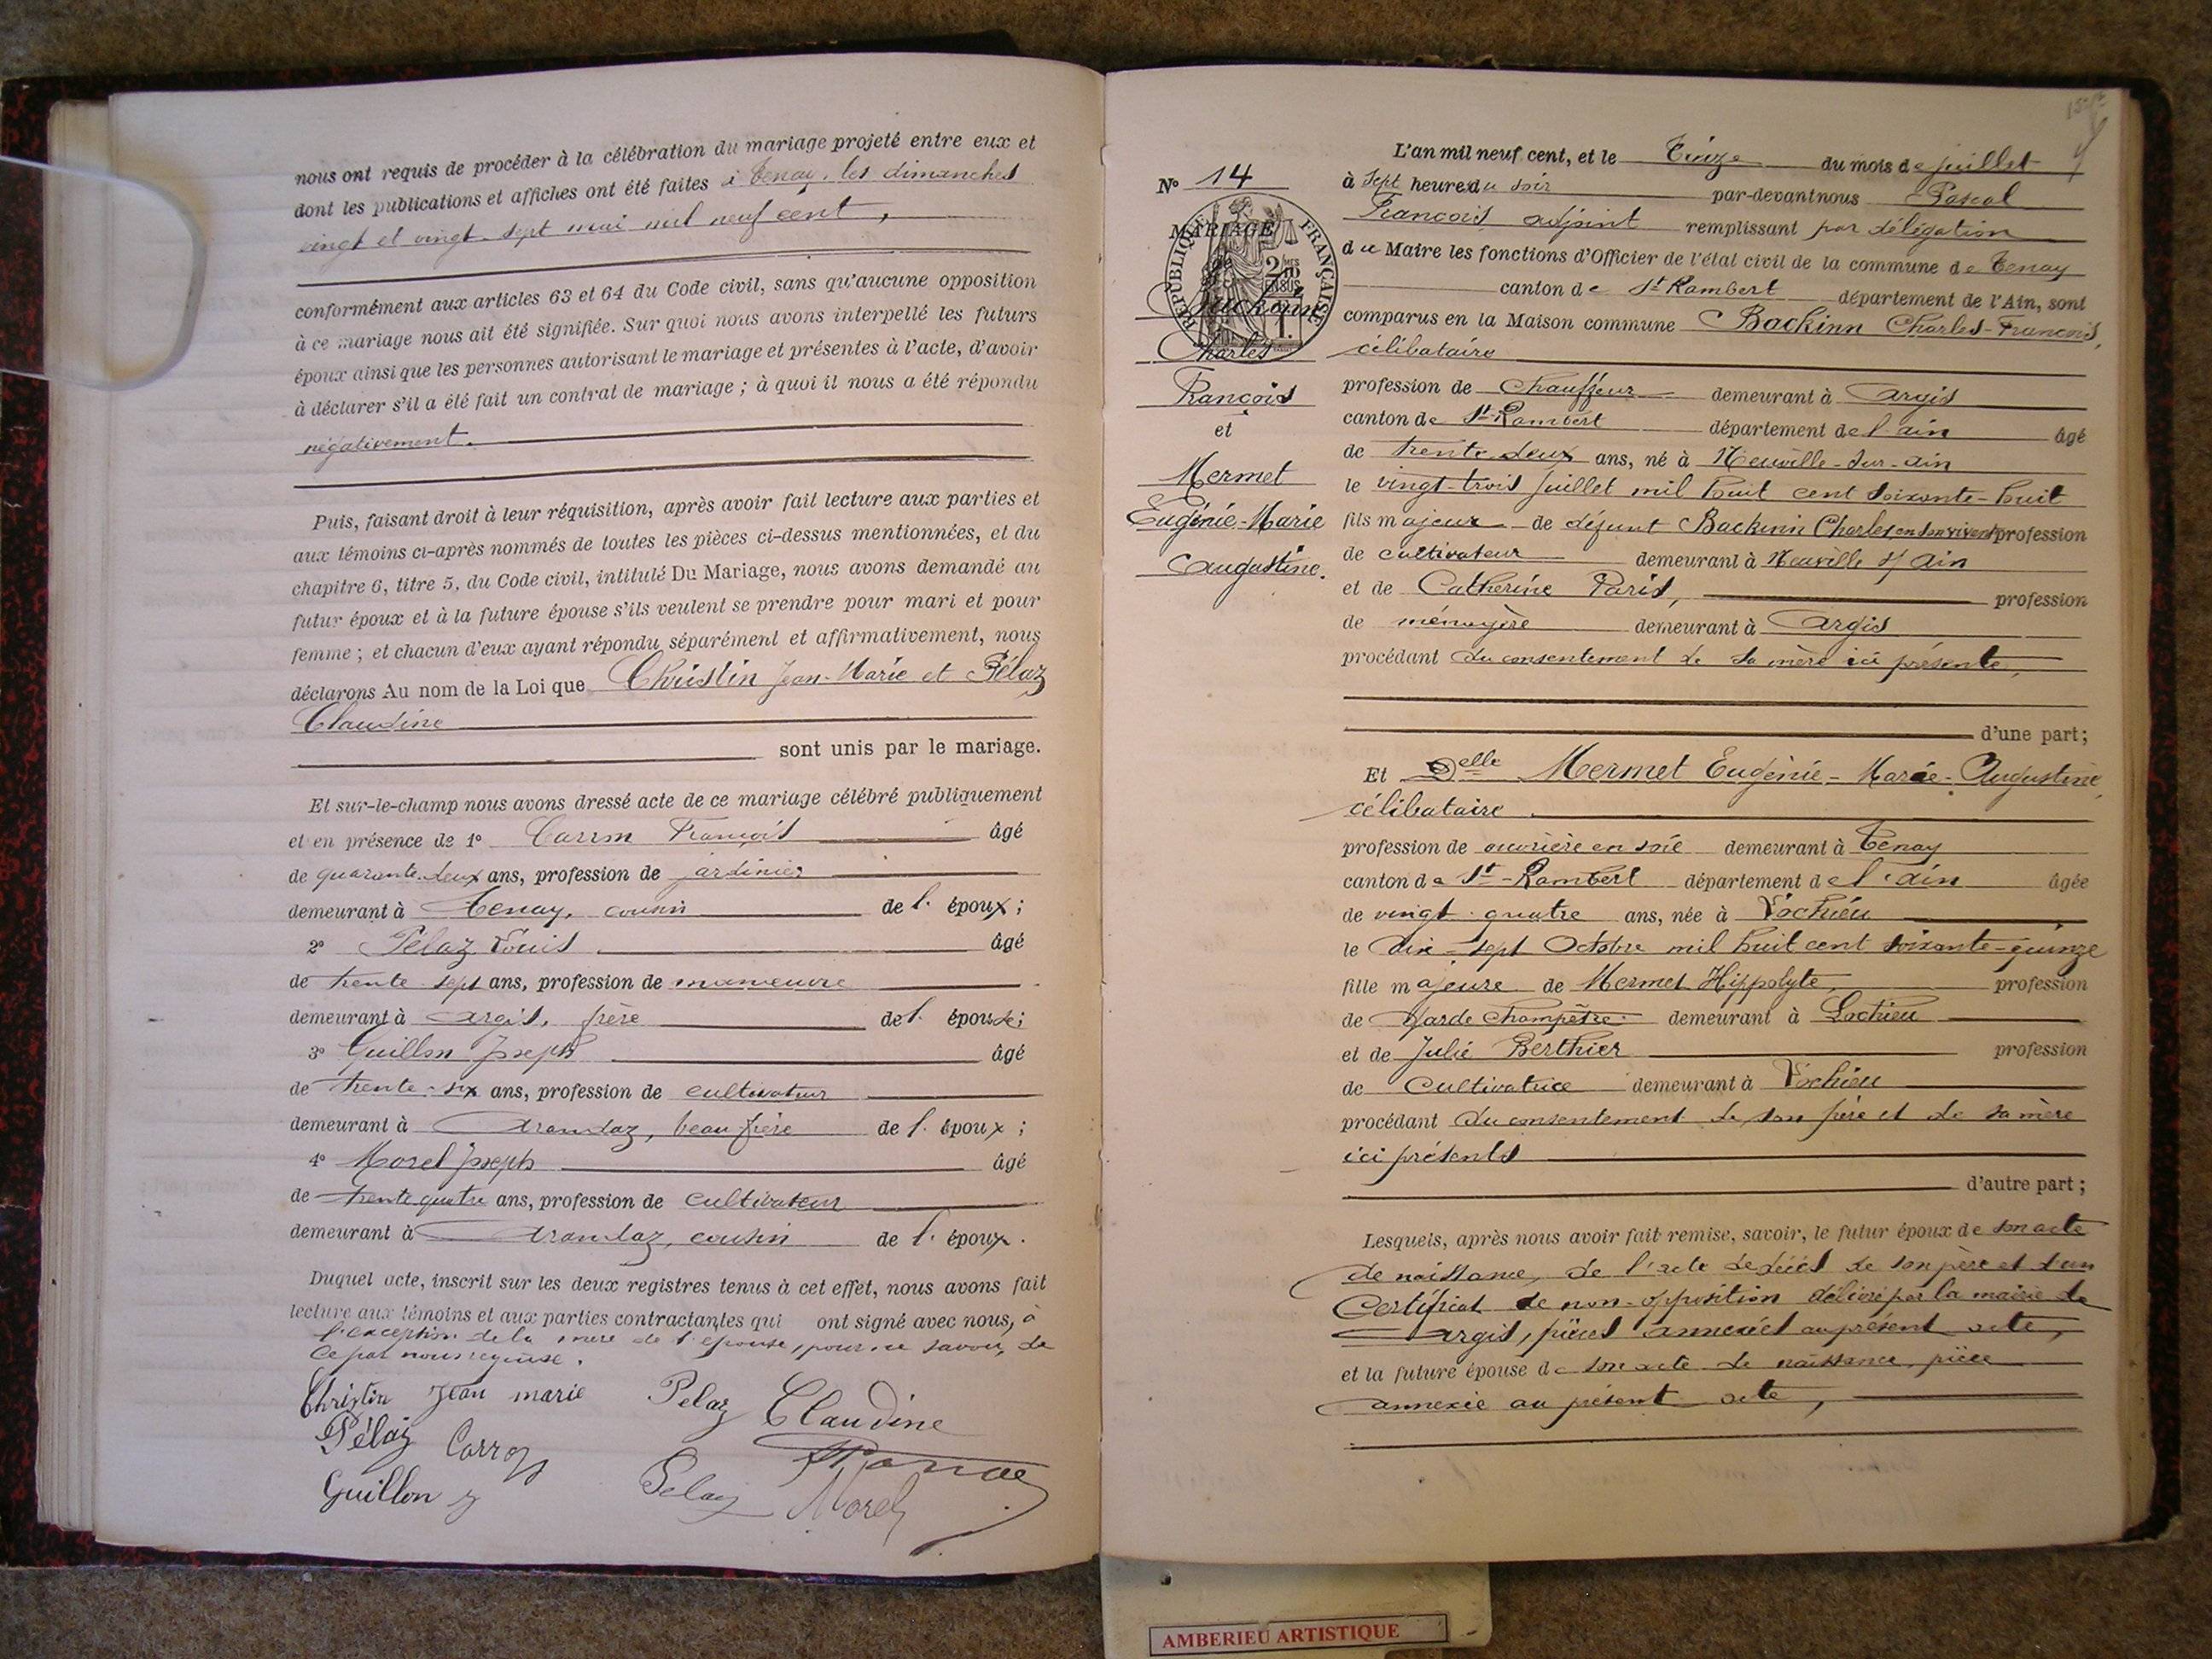 nous ont requis de procéder à la célébration du mariage projeté entre eux et
dont les publications et affiches ont été faites à Tenay, les dimanches
vingt et vingt-sept mai mil neuf cent,
conformément aux articles 63 et 64 du Code civil, sans qu'aucune opposition
à ce mariage nous ait été signifiée. Sur quoi nous avons interpellé les futurs
époux ainsi que les personnes autorisant le mariage et présentes à l'acte, d'avoir
à déclarer s'il a été fait un contrat de mariage ; à quoi il nous a été répondu
négativement.
Puis, faisant droit à leur réquisition, après avoir fait lecture aux parties et
aux témoins ci-après nommés de toutes les pièces ci-dessus mentionnées, et du
chapitre 6, titre 5, du Code civil, intitulé Du Mariage, nous avons demandé au
futur époux et à la future épouse s'ils veulent se prendre pour mari et pour
femme ; et chacun d'eux ayant répondu séparément et affirmativement, nous
déclarons Au nom de la Loi que Christin Jean-Marie et Pélaz
Claudine
sont unis par le mariage.
Et sur-le-champ nous avons dressé acte de ce mariage célébré publiquement
et en présence de 1° François âgé
de quarante-deux ans, profession de jardinier
demeurant à Tenay, cousin de l' époux ;
2° Pelaz Louis âgé
de trente-sept ans, profession de manœuvre
demeurant à Argis, frère de l' épouse ;
3° Guillon Joseph âgé
de trente-six ans, profession de cultivateur
demeurant à Arandaz, beau frère de l' époux ;
4° Morel Joseph âgé
de trente quatre ans, profession de cultivateur
demeurant à Arandaz, cousin de l' époux.
Duquel acte, inscrit sur les deux registres tenus à cet effet, nous avons fait
lecture aux témoins et aux parties contractantes qui ont signé avec nous, à
l'exception de la mère de l'épouse, pour ne savoir, de
ce par nous requise.
Christin Jean marie Pelaz Claudine
Pélaz
Guillon J Pelaz Morel
N° 14
MARIAGE
de
RÉPUBLIQUE FRANÇAISE
Charles
François
et
Mermet
Eugénie-Marie
Augustine.
L'an mil neuf cent, et le du mois de juillet
à sept heures du soir par-devant nous Pascal
François, adjoint remplissant par délégation
du Maire les fonctions d'Officier de l'état civil de la commune de Tenay
canton de St-Rambert département de l'Ain, sont
comparus en la Maison commune Backinn Charles-François,
célibataire
profession de Chauffeur demeurant à Argis
canton de St-Rambert département de l'ain âgé
de trente-deux ans, né à Neuville-sur-ain
le vingt-trois juillet mil huit cent soixante-huit
fils majeur de défunt Backinn Charles en son vivant profession
de cultivateur demeurant à Neuville s/ Ain
et de Catherine Paris, profession
de ménagère demeurant à Argis
procédant du consentement de sa mère ici présente,
d'une part ;
Et Delle Mermet Eugénie-Marie-Augustine,
célibataire.
profession de ouvrière en soie demeurant à Tenay
canton de St-Rambert département de l'ain âgée
de vingt-quatre ans, née à Lochieu
le dix-sept Octobre mil huit cent soixante-quinze
fille majeure de Mermet Hippolyte, profession
de Garde Champêtre demeurant à Lochieu
et de Julie Berthier profession
de Cultivatrice demeurant à Lochieu
procédant du consentement de son père et de sa mère
ici présents
d'autre part ;
Lesquels, après nous avoir fait remise, savoir, le futur époux de son acte
de naissance, de l'acte de décès de son père et d'un
Certificat de non-opposition délivré par la mairie de
Argis, pièces annexées au présent acte,
et la future épouse de son acte de naissance, pièce
annexée au présent acte,
AMBERIEU ARTISTIQUE